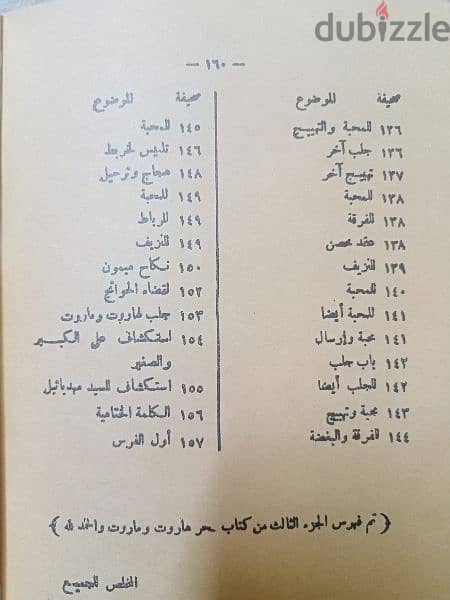 dubizzle
— ١٦٠ —
صحيفة للوضوع
١٣٦ للمحبة والتهييج
١٣٦ جلب آخر
١٣٧ تهييج آخر
١٣٨ للمحبة
١٣٨ للفرقة
١٣٨ عقد محصن
١٣٩ للنزيف
١٤٠ للمحبة
١٤١ للمحبة أيضا
١٤١ محبة وإرسال
١٤٢ باب جلب
١٤٢ للجلب أيضا
١٤٣ محبة وتهييج
١٤٤ للفرقة والبغضة
صحيفة للوضوع
١٤٥ للمحبة
١٤٦ تلديس لخربط
١٤٨ هجاج وترحيل
١٤٩ للمحبة
١٤٩ للرباط
١٤٩ للنزيف
١٥٠ نكاح ميمون
١٥٢ لقضاء الحوائج
١٥٣ جلب لهاروت وماروت
١٥٤ استكشاف على الكبير
والصغير
١٥٥ استكشاف للسيد مهديائيل
١٥٦ الكلمة الختامية
١٥٧ أول الفرس
﴿ تم فهرس الجزء الثالث من كتاب سحر هاروت وماروت والحمد لله ﴾
المخلص للجميع